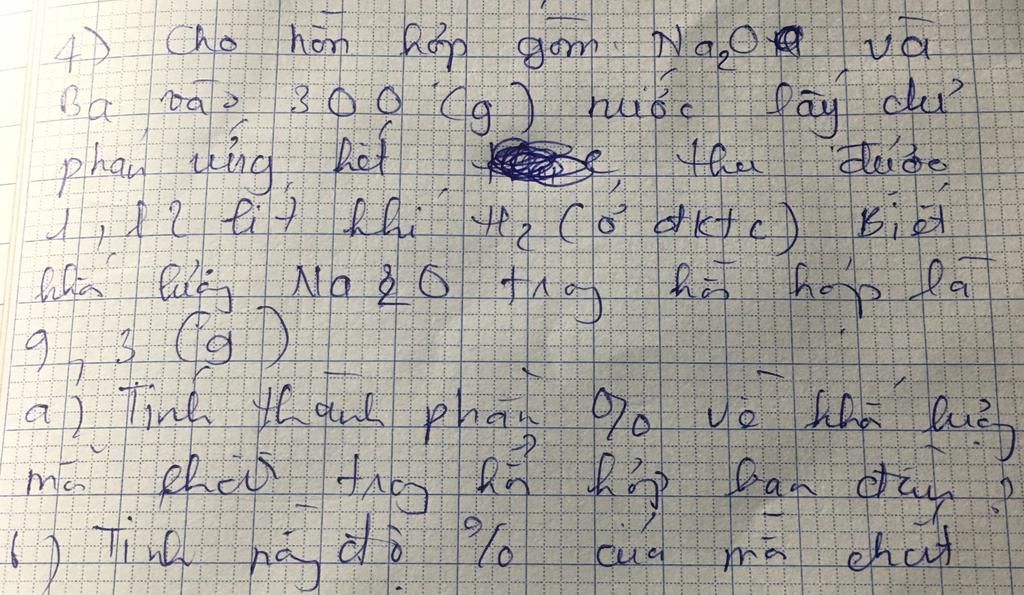 4) Cho hỗn hợp gồm Na2O và
Ba vào 300 (g) nước lấy dư
phản ứng hết thu được
1,12 lít khí H2 (ở đktc) Biết
khố lượng Na2O trog hỗ hợp là
9,3 (g)
a) Tính thành phần % về khố lượg
mỗ chất trog hỗ hợp ban đầu ?
b) Tính nồng độ % của mỗ chất